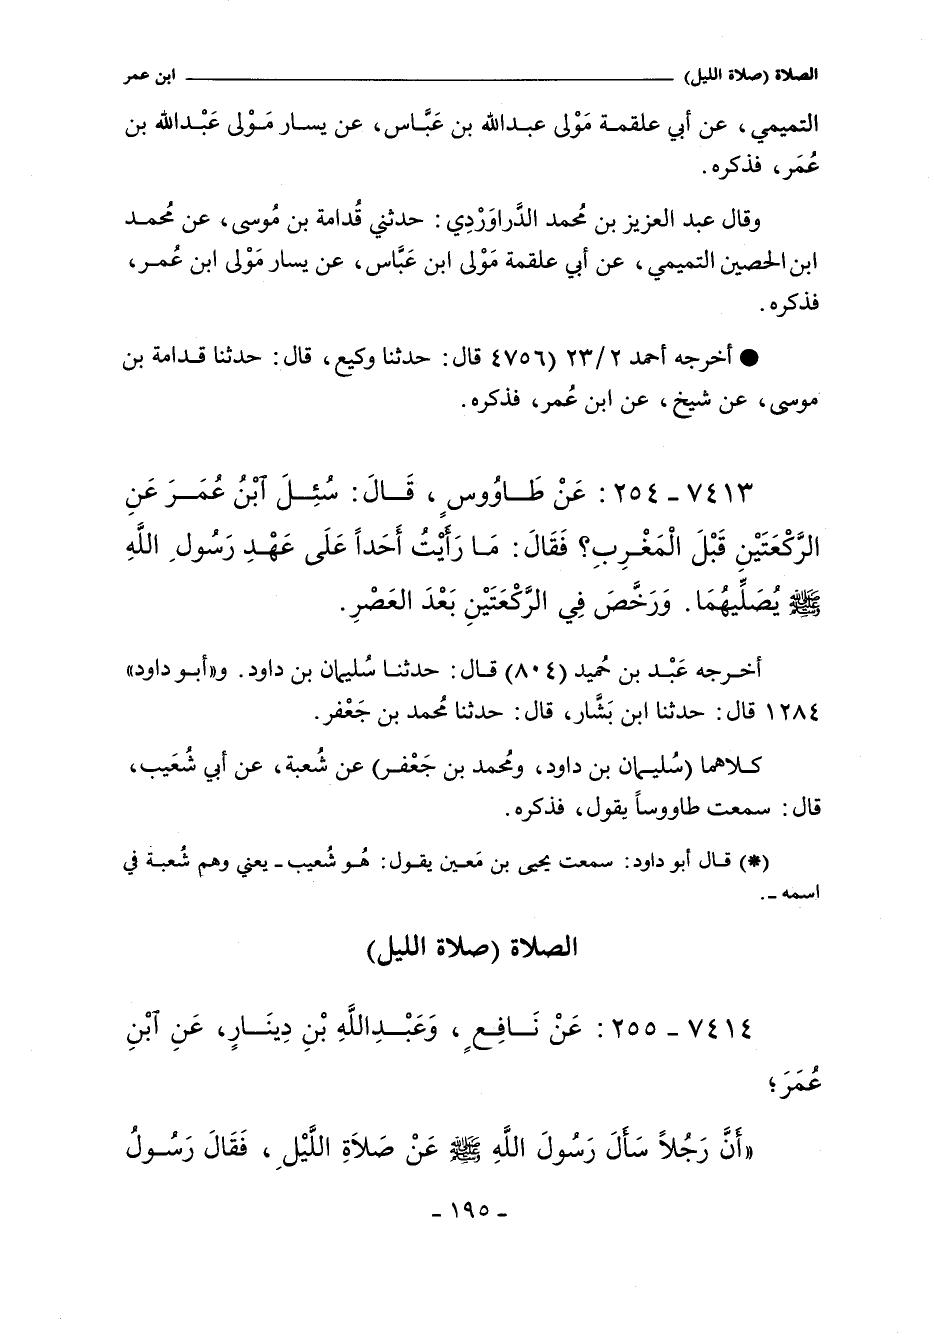 الصلاة (صلاة الليل) ــــــــــــــــــــ ابن عمر
التميمي، عن أبي علقمة مَوْلى عبدالله بن عَبَّاس، عن يسار مَوْلى عَبْدالله بن
عُمَر، فذكره.
وقال عبد العزيز بن مُحمد الدَّراوَرْدِي: حدثني قُدامة بن مُوسى، عن مُحمد
ابن الحصين التميمي، عن أبي علقمة مَوْلى ابن عَبَّاس، عن يسار مَوْلى ابن عُمر،
فذكره.
● أخرجه أحمد ٢٣/٢ (٤٧٥٦ قال: حدثنا وكيع، قال: حدثنا قدامة بن
موسى، عن شيخ، عن ابن عُمر، فذكره.
٧٤١٣ ـ ٢٥٤: عَنْ طَاوُوسٍ، قَالَ: سُئِلَ ٱبْنُ عُمَرَ عَنِ
الرَّكْعَتَيْنِ قَبْلَ الْمَغْرِبِ؟ فَقَالَ: مَا رَأَيْتُ أَحَداً عَلَى عَهْدِ رَسُولِ اللَّهِ
ﷺ يُصَلِّيهُمَا. وَرَخَّصَ فِي الرَّكْعَتَيْنِ بَعْدَ العَصْرِ.
أخرجه عَبْد بن حُميد (٨٠٤) قال: حدثنا سُليمان بن داود. و«أبو داود»
١٢٨٤ قال: حدثنا ابن بَشَّار، قال: حدثنا مُحمد بن جَعْفر.
كلاهما (سُليمان بن داود، ومُحمد بن جَعْفر) عن شُعبة، عن أبي شُعَيب،
قال: سمعت طاووساً يقول، فذكره.
(*) قال أبو داود: سمعت يحيى بن مَعين يقول: هُو شُعيب ـ يعني وهم شُعبة في
اسمه ـ.
الصلاة (صلاة الليل)
٧٤١٤ ـ ٢٥٥: عَنْ نَافِعٍ، وَعَبْدِاللَّهِ بْنِ دِينَارٍ، عَنِ ٱبْنِ
عُمَرَ؛
«أَنَّ رَجُلاً سَأَلَ رَسُولَ اللَّهِ ﷺ عَنْ صَلاَةِ اللَّيْلِ، فَقَالَ رَسُولُ
ـ ١٩٥ ـ